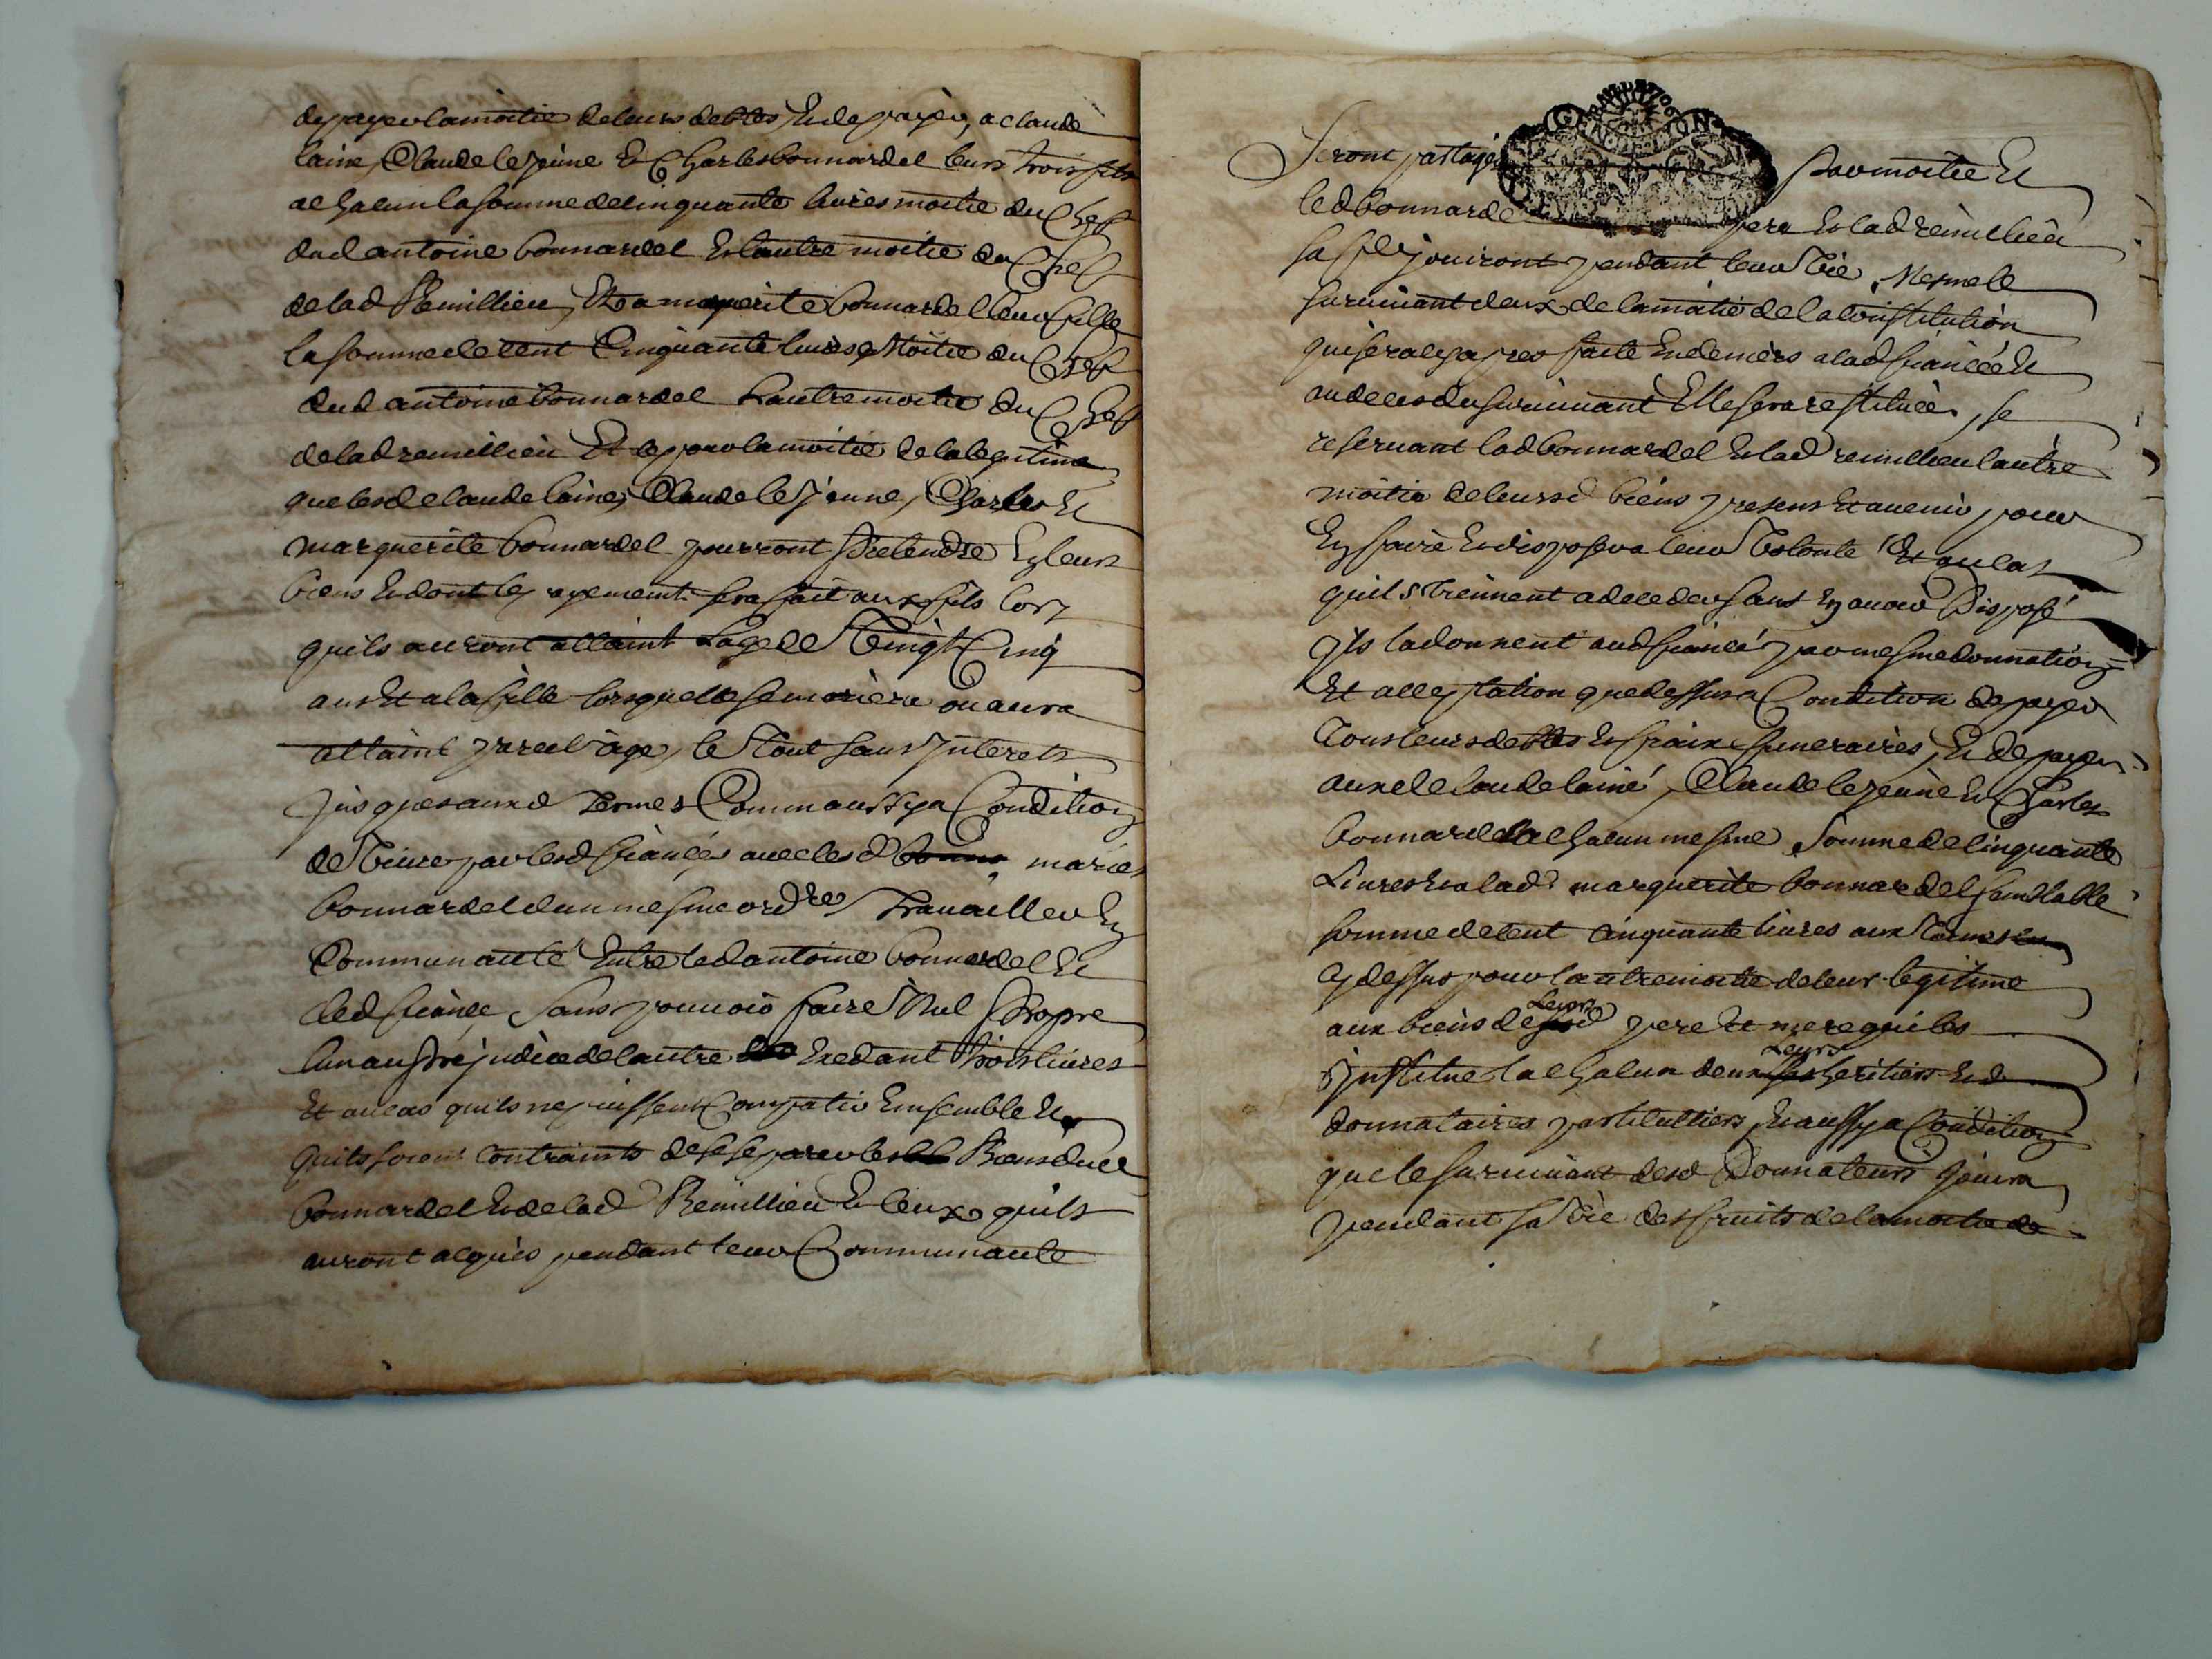 de payer la moitié de leurs debtes, Et de payer, a claude
laine, Claude le jeune Et Charles bonnardel leurs trois fils
a chacun la somme de cinquante livres moitié du Chef
dud antoine bonnardel Et lautre moitié du Chef
de lad Remillieu, Et a marguerite bonnardel leur fille
la somme de cent Cinquante livres Moitié du Chef
dud antoine bonnardel Lautre moitié du Chef
de lad remillieu Et ce pour la moitié de la legitime
que lesd claude laine, Claude le Jeune, Charles Et
marguerite bonnardel pourront Pretendre En leurs
biens Et dont le payement sera fait aux fils lors
quils auront attaint Lage de Vingt Cinq
ans Et a la fille lorsquelle se mariera ou aura
attaint pareil age, le Tout sans Interets
Jusques auxd Termes Comm aussy a Condition
de Vivre par lesd fiancés avec lesd maries
bonnardel dun mesme ordre Travailler En
Communauté Entre led antoine bonnardel Et
led fiancé sans pouvoir faire Nul Propre
lun au Prejudice de lautre Exedant Trois livres
Et au cas quils ne puissent Compatir Ensemble Et
quils soient Contraints de se separer les Biens dud
bonnardel Et de lad Remillieu Et Ceux quils
auront acquis pendant leur Communauté
Seront partagés Par moitié Et
led bonnardel pere Et lad remillieu
sa fe jouiront pendant leur Vie, Mesme le
survivant deux de la moitié de la Constitution
qui sera cy apres faite En deniers a lad fiancée Et
au deces du survivant Elle sera restituée, se
reservant led bonnardel Et lad remillieu lautre
moitié de leursd biens presens Et avenir pour
En faire Et disposer a leur Volonté Et au cas
quils Viennent a deceder sans En avoir Disposé
Ils la donnent aud fiancé par mesme donnation
Et acceptation que dessus a Condition de payer
Tous leurs debtes Et fraix funeraires, Et de payer
auxd Claude lainé, Claude le jeune Et Charles
bonnardel a chacun mesme Somme de Cinquante
Livres Et a lad marguerite bonnardel semblable
somme de Cent cinquante livres aux Termes
cy dessus pour lautre moitié de leur legitime
aux biens de Leurs pere Et mere qui les
Institue la chacun deux Leurs heritiers Et
donnataires particulliers, Et aussy a Condition
que le survivant desd Donnateurs Jouira
pendant sa Vie des fruits de la moitié de